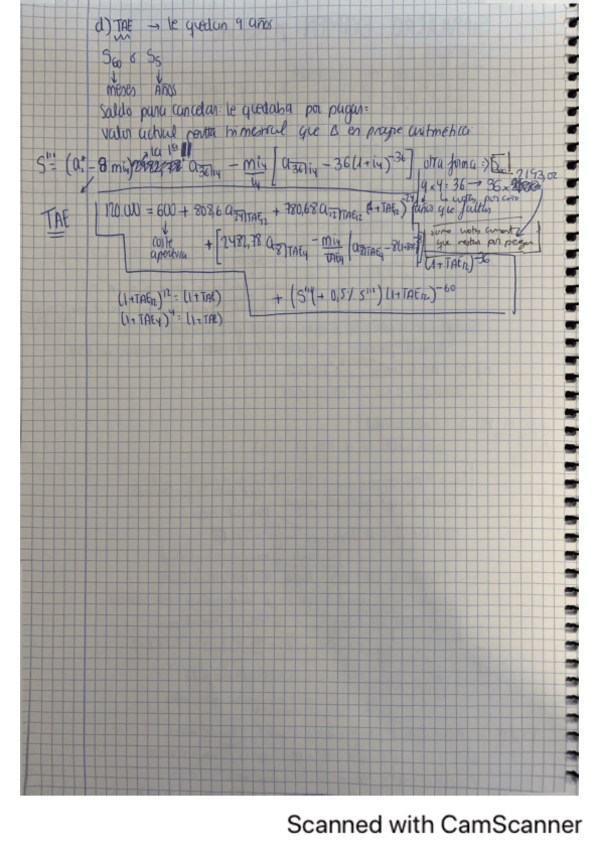 d) TAE → le quedan 9 años
S60 o S5
↓ ↓
meses Años
Saldo para cancelar: le quedaba por pagar=
valor actual renta trimestral que es en progre aritmética
S'''= (a1 - 8 mi4) a36⌉i4 - mi4/i4 [a36⌉i4 - 36(1+i4)^-36] otra forma ⇒
9 x 4 = 36 → 36 x 2193,02
años que faltan
TAE
120.000 = 600 + 808,6 a TAE12 + 780,68 a12⌉TAE12 (1+TAE12)^-24
coste apertura
+ [2482,78 a8⌉TAE4 - mi4/TAE4 (a8⌉TAE4 - 8(1+TAE4)^-8)] (1+TAE12)^-36
suma cuotas amort que restan por pagar
(1+TAE12)^12 = (1+TAE)
+ (S''' + 0,5% S''') (1+TAE12)^-60
(1+TAE4)^4 = (1+TAE)
Scanned with CamScanner